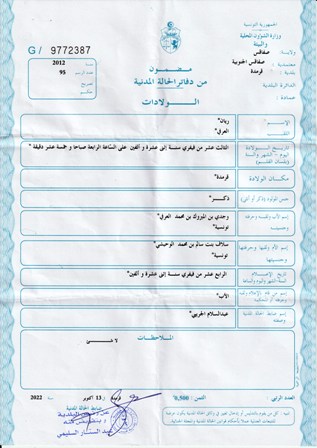 الجمهورية التونسية
وزارة الشؤون المحلية
والبيئة
ولاية: صفاقس
معتمدية: صفاقس الجنوبية
بلدية: قرمدة
الدائرة البلدية
عمادة:
G / 9772387
مضمون
من دفاتر الحالة المدنية
الولادات
سنة 2012
عدد الرسم 95
تصريح
حكم
الإسم ريان"
اللقب العرقي"
تاريخ الولادة
اليوم - الشهر والسنة
(بلسان القلم)
الثالث عشر من فيفري سنة إثنى عشرة و ألفين على الساعة الرابعة صباحا و خمسة عشر دقيقة "
مكان الولادة قرمدة"
جنس المولود (ذكر أو أنثى) ذكر"
إسم الأب ولقبه وحرفته
وجنسيته
وجدي بن المبروك بن محمد العرقي"
تونسية"
إسم الأم ولقبها وحرفتها
وجنسيتها
سلاف بنت سالم بن محمد الوحيشي"
تونسية"
تاريخ الإعلام
الرابع عشر من فيفري سنة إثنى عشرة و ألفين"
الأب"
إسم ضابط الحالة المدنية
وصفته
عبدالسلام الحربي"
الملاحظات
لا شيء
العدد الرتبي:
الثمن: 0,500
قرمدة في 13 أكتوبر 2022
ضابط الحالة المدنية